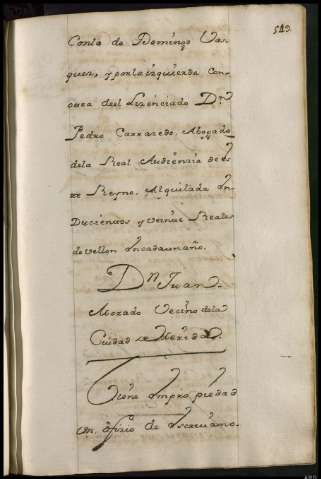 543.
Conla de Domingo Vaz
quez, y por la izquierda con
casa del Lizenciado Dn
Pedro Carracedo, Abogado
dela Real Audienzia de es
te Reyno, Alquilada en
Duscientos y veinte Reales
de vellon en cada un año.
Dn Juan
Vecino dela
Ciudad de
tiene en propiedad
un ofizio de Escriuano.